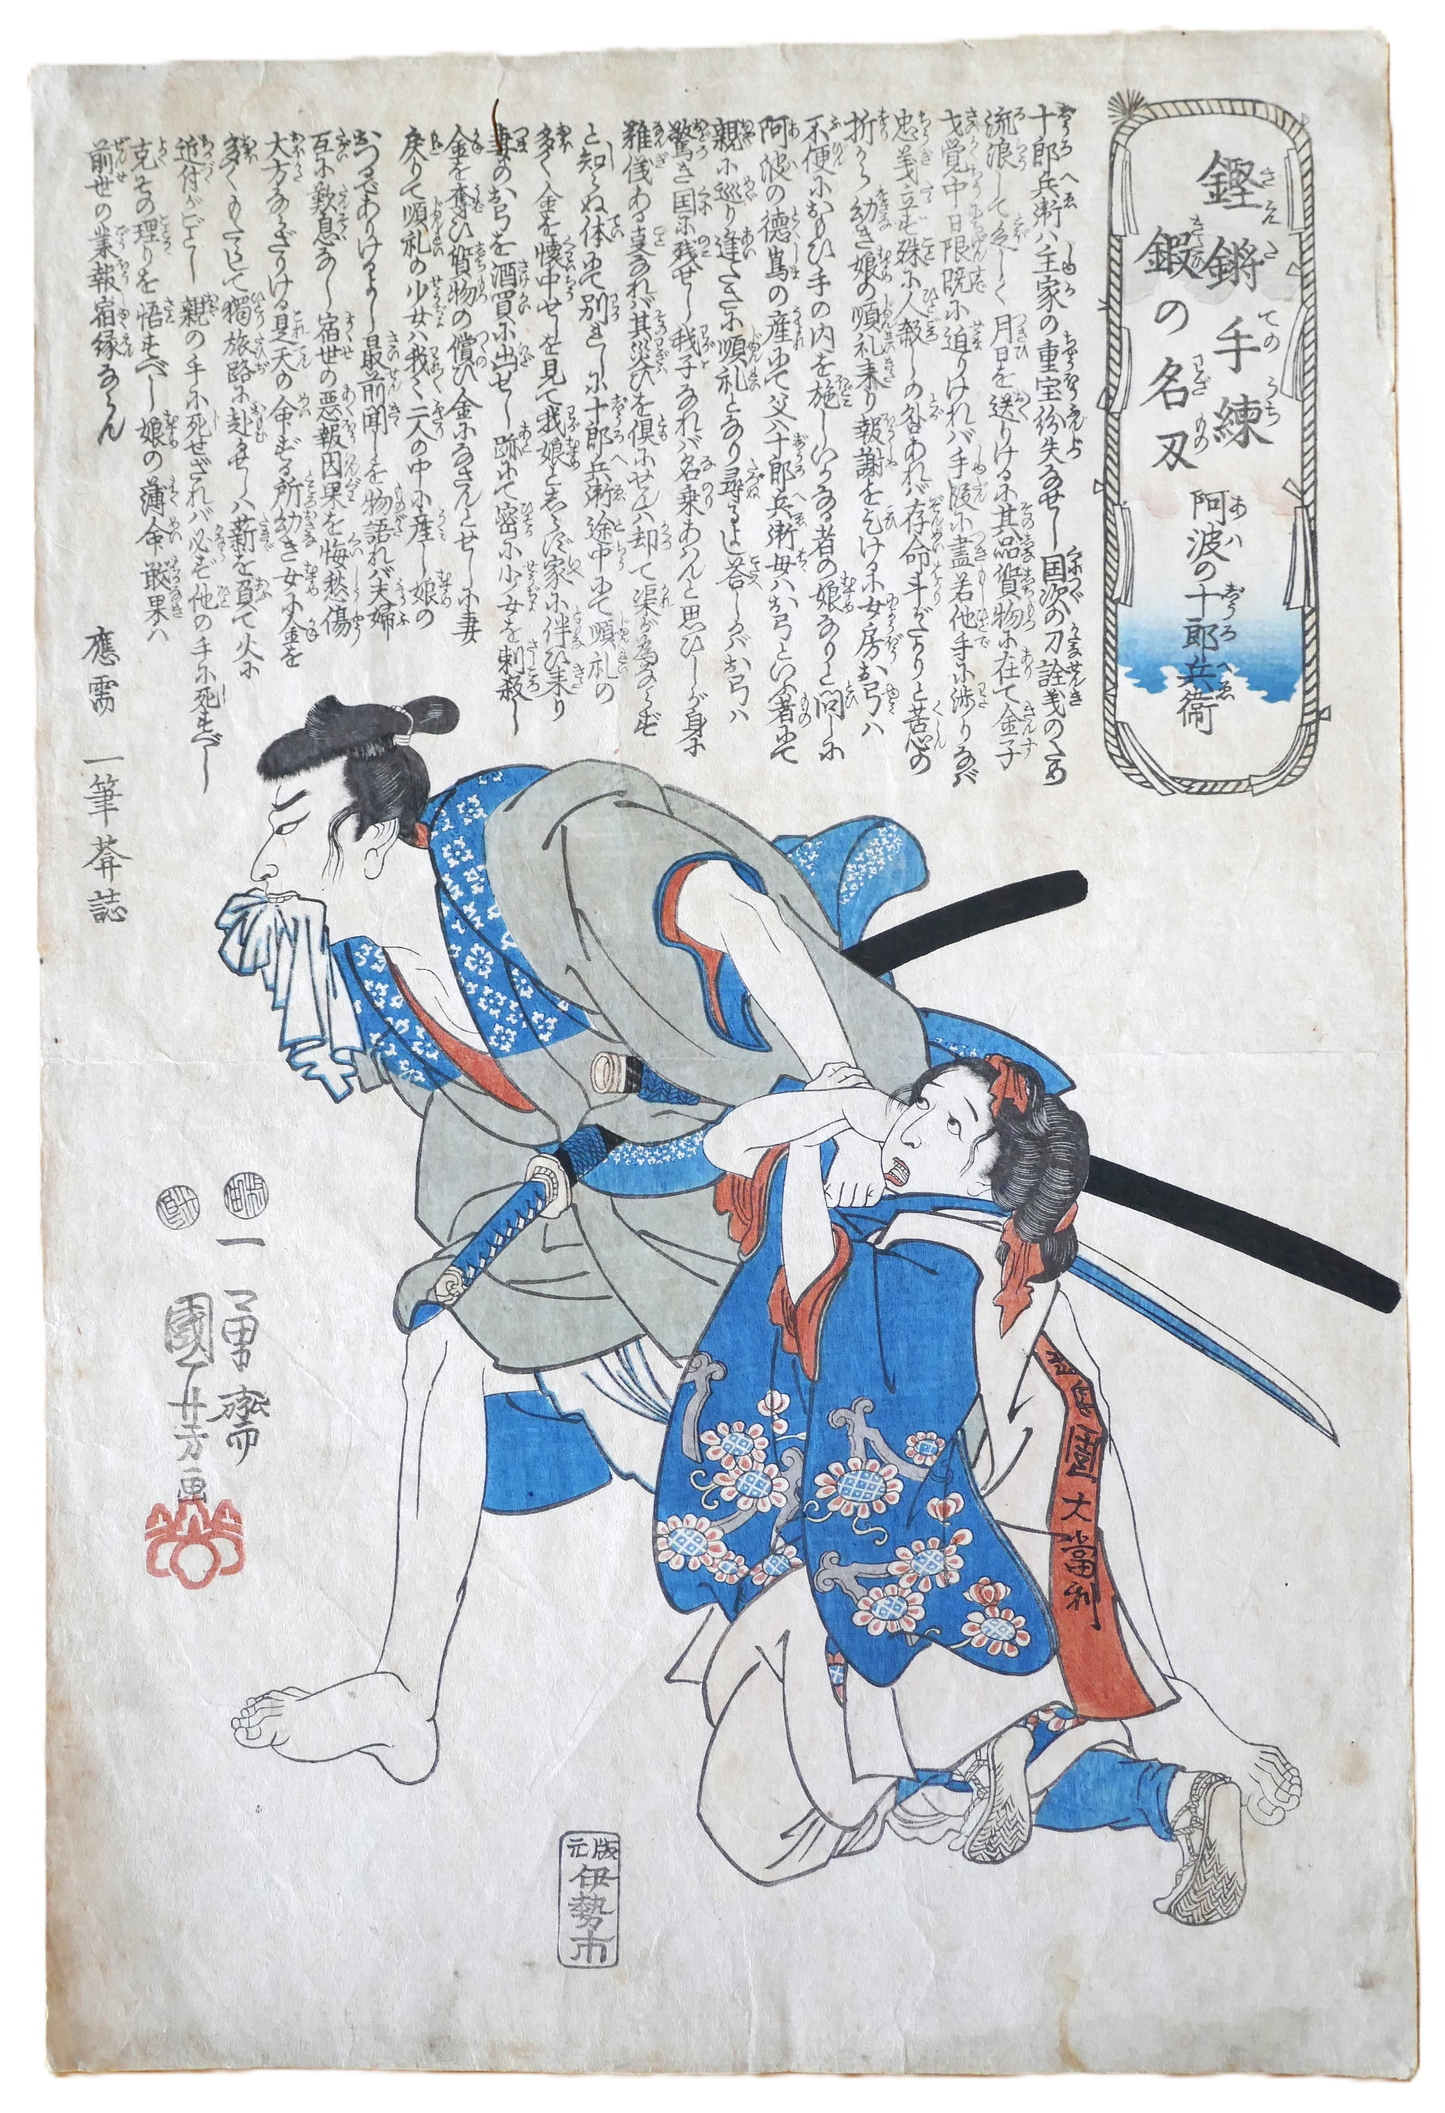 鏗鏘手練
鍜の名刃
阿波の十郎兵衛
十郎兵衛ハ主家の重宝紛失なせし国次の刀詮義のため
流浪して久しく月日を送りける小其品質物小在て金子
才覚中日限既小迫りけれバ手段小盡若他手小渉りなバ
忠義立ず殊小人殺しの咎あれバ存命斗がたかりと苦心の
折から幼き娘の順礼来り報謝を乞ける小女房お弓ハ
不便小おもひ手の内を施しいかなる者の娘なりと問し小
阿波の徳嶌の産にて父ハ十郎兵衛母ハお弓といふ者にて
親小巡り逢たさ小順礼となり尋るよし答しかバお弓ハ
驚き国小残せし我子なれバ名乗あハんと思ひしが身小
難儀ある事なれバ其災ひを倶小せんハ却て渠が為ならず
と知らぬ体にて別れし小十郎兵衛途中にて順礼の
多く金を懐中せしを見て我娘としらず家小伴ひ来り
妻のお弓を酒買小出せし跡にて密小少女を刺殺し
金を奪ひ質物の償ひ金小なさんとせし小妻
戻りて順礼の少女ハ我々二人の中小産し娘の
おつるでありけるよし最前聞しを物語れバ夫婦
互小歎息なし宿世の悪報因果を悔愁傷
大方ならざりける是天の命ずる所幼き女小金を
多くもたらして獨旅路小赴せしハ薪を負て火小
近付がごとし親の手小死せざれバ必ず他の手小死すべし
克其の理りを悟すべし娘の薄命ハ
前世の業報宿縁ならん
應需 一筆葊誌
一勇齋
國芳画
大當利
版元
伊勢市